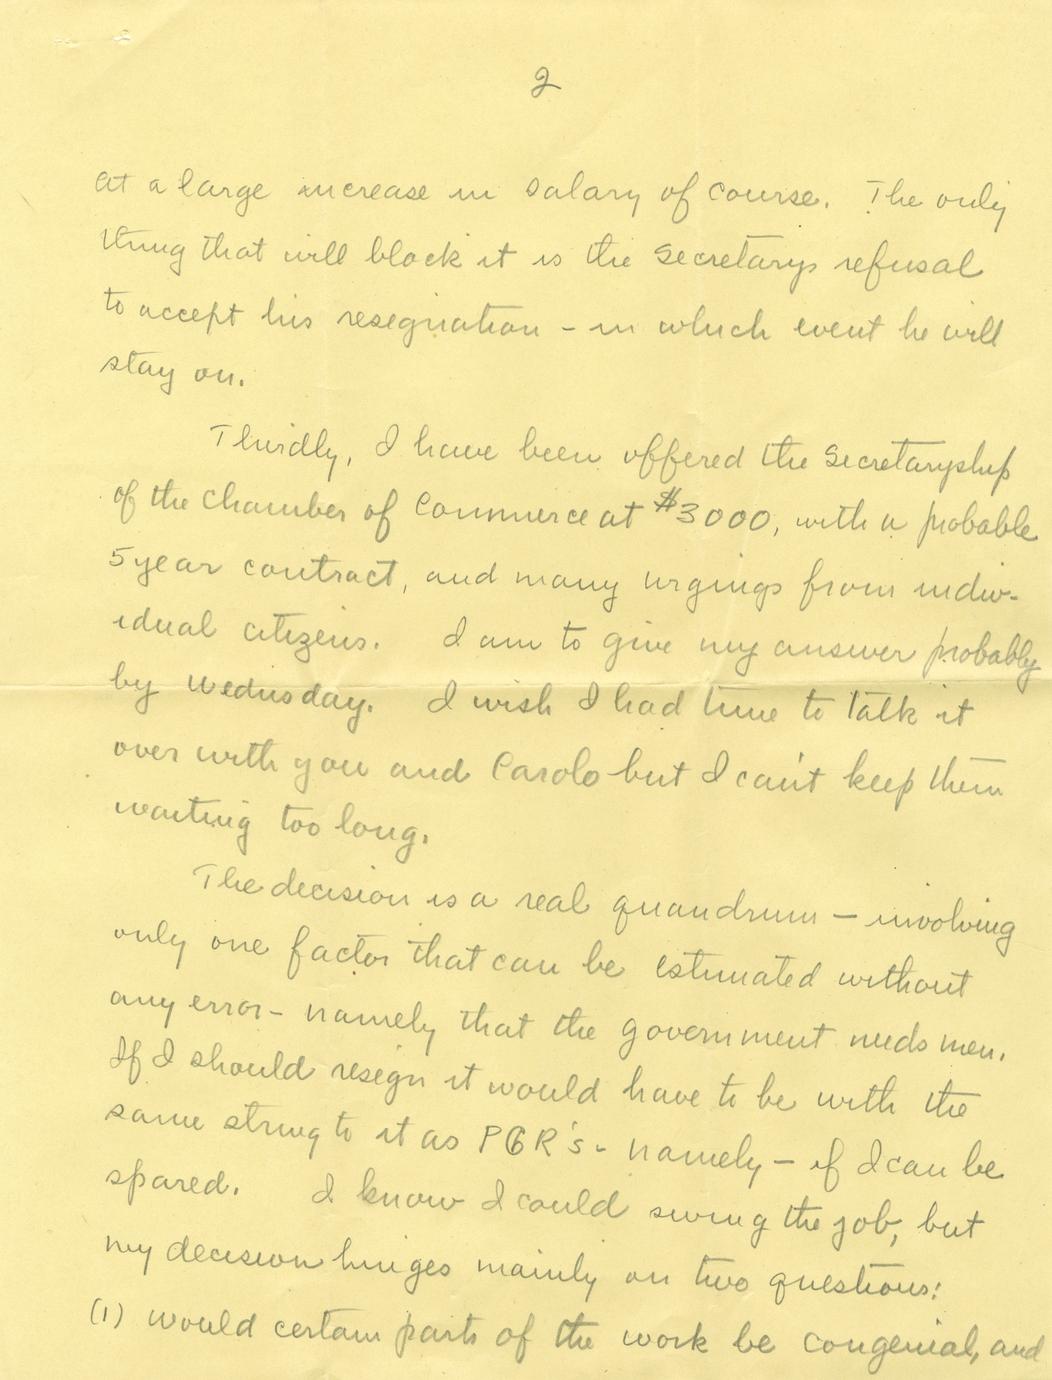 2
at a large increase in salary of course. The only
thing that will block it is the secretarys refusal
to accept his resignation - in which event he will
stay on.
Thirdly, I have been offered the Secretaryship
of the Chamber of Commerce at $3000, with a probable
5 year contract, and many urgings from indiv-
idual citizens. I am to give my answer probably
by Wednesday. I wish I had time to talk it
over with you and Carolo but I can't keep them
waiting too long.
The decision is a real quandrum - involving
only one factor that can be estimated without
any error - namely that the government needs men.
If I should resign it would have to be with the
same string to it as PGR's - namely - if I can be
spared. I know I could swing the job, but
my decision hinges mainly on two questions:
(1) would certain parts of the work be congenial, and